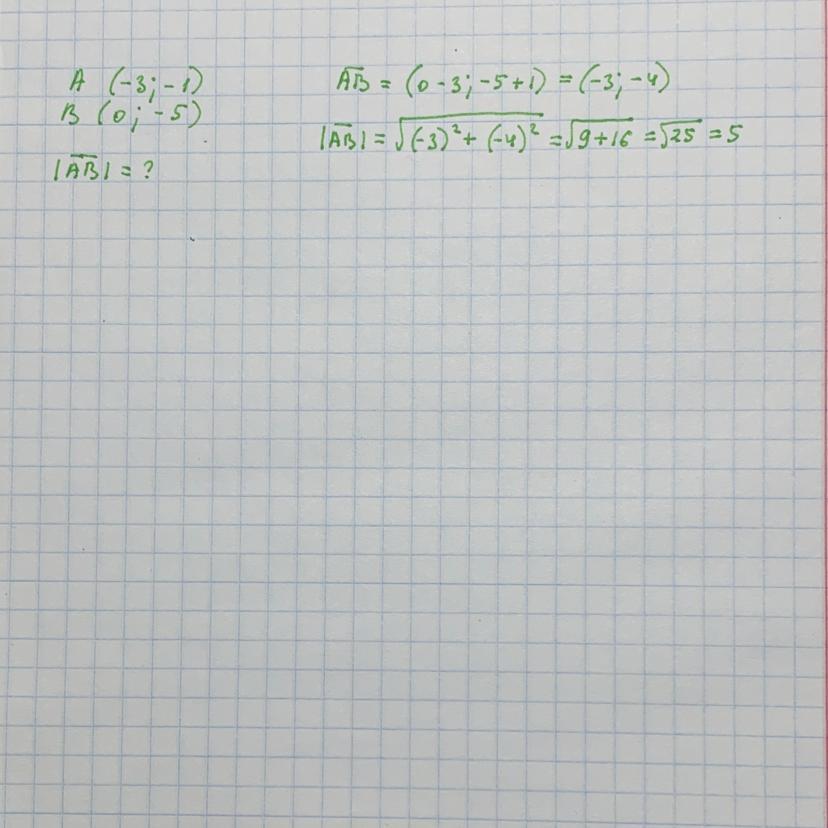 A (-3; -1)
B (0; -5)
|AB| = ?
AB = (0 - 3; -5 + 1) = (-3; -4)
|AB| = √((-3)² + (-4)²) = √(9+16) = √25 = 5